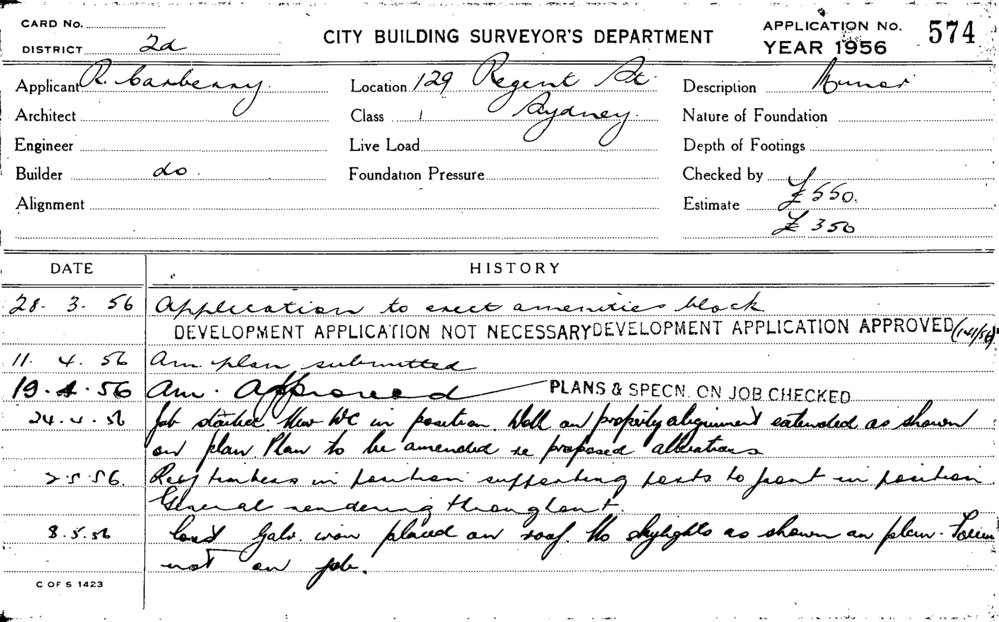 CARD No.
DISTRICT 2d
CITY BUILDING SURVEYOR'S DEPARTMENT
APPLICATION No. 574
YEAR 1956
Applicant R. Carberry
Location 129 Regent St.
Description Minor
Architect
Class 1 Sydney
Nature of Foundation
Engineer
Live Load
Depth of Footings
Builder do
Foundation Pressure
Checked by
Alignment
Estimate £550.
£350
DATE HISTORY
28. 3. 56 Application to erect amenities block
DEVELOPMENT APPLICATION NOT NECESSARY DEVELOPMENT APPLICATION APPROVED
11. 4. 56 Am. plan submitted
19. 4. 56 Am. Approved PLANS & SPECN. ON JOB CHECKED
24. 4. 56 Job started New WC in position. Wall on property alignment extended as shown
on plan Plan to be amended re proposed alterations
2.5.56 Roof timbers in position supporting posts to front in position
General rendering throughout.
8.5.56 Galv. iron placed on roof No skylights as shown on plan.
not on job.
C OF S 1423